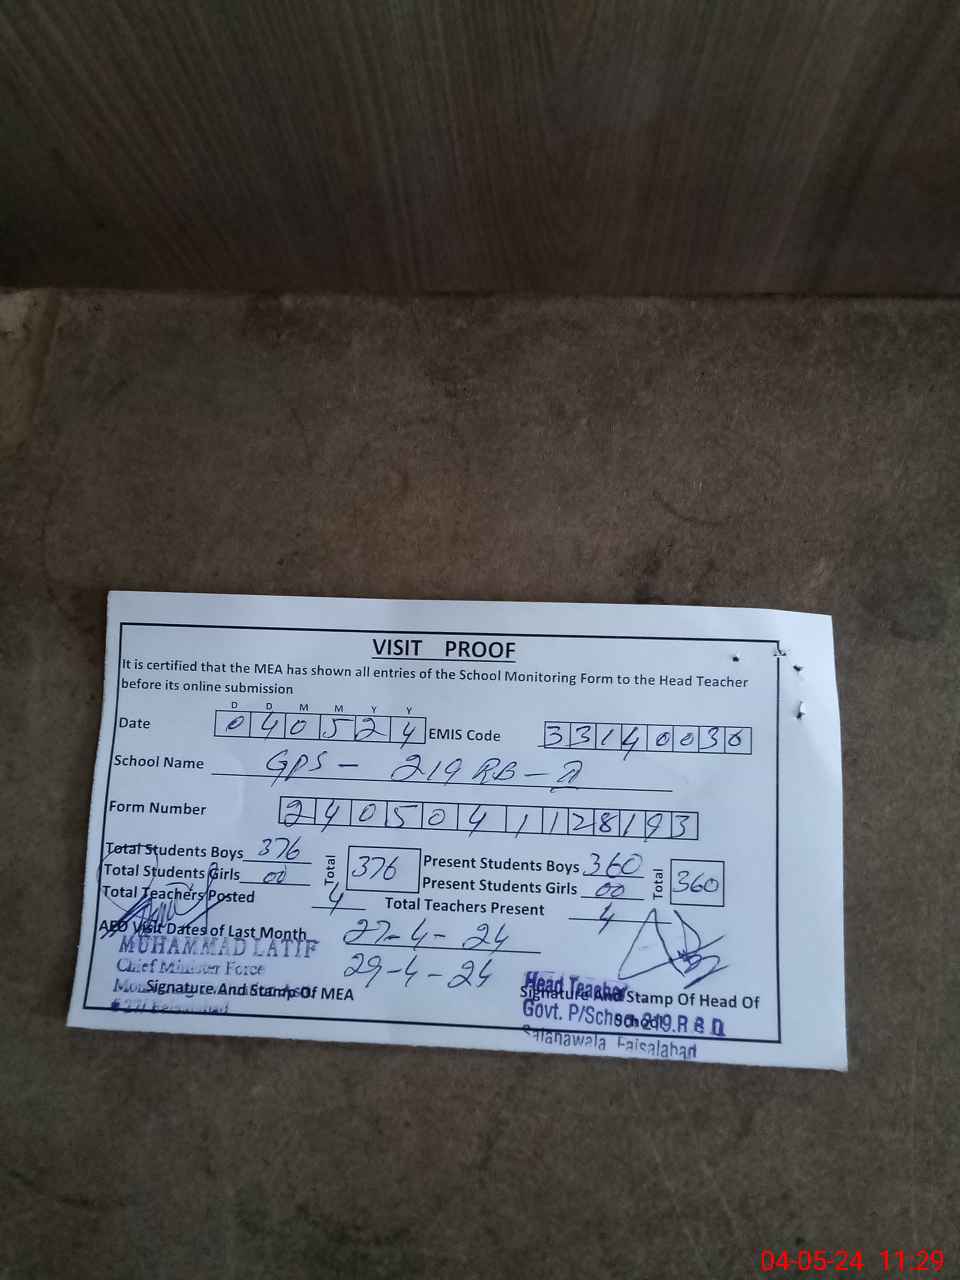 VISIT PROOF
It is certified that the MEA has shown all entries of the School Monitoring Form to the Head Teacher
before its online submission
D D M M Y Y
Date 040524 EMIS Code 33140036
School Name GPS - 219 RB - II
Form Number 240504 1128193
Total Students Boys 376 Total 376 Present Students Boys 360 Total 360
Total Students Girls 00 Present Students Girls 00
Total Teachers Posted 4 Total Teachers Present 4
AEO Visit Dates of Last Month 27-4-24
29-4-24
MUHAMMAD LATIF
Chief Minister Force
Signature And Stamp Of MEA
Faisalabad
Head Teacher
Signature And Stamp Of Head Of
School
Govt. P/School 219.R B
Faisalabad
04-05-24 11:29